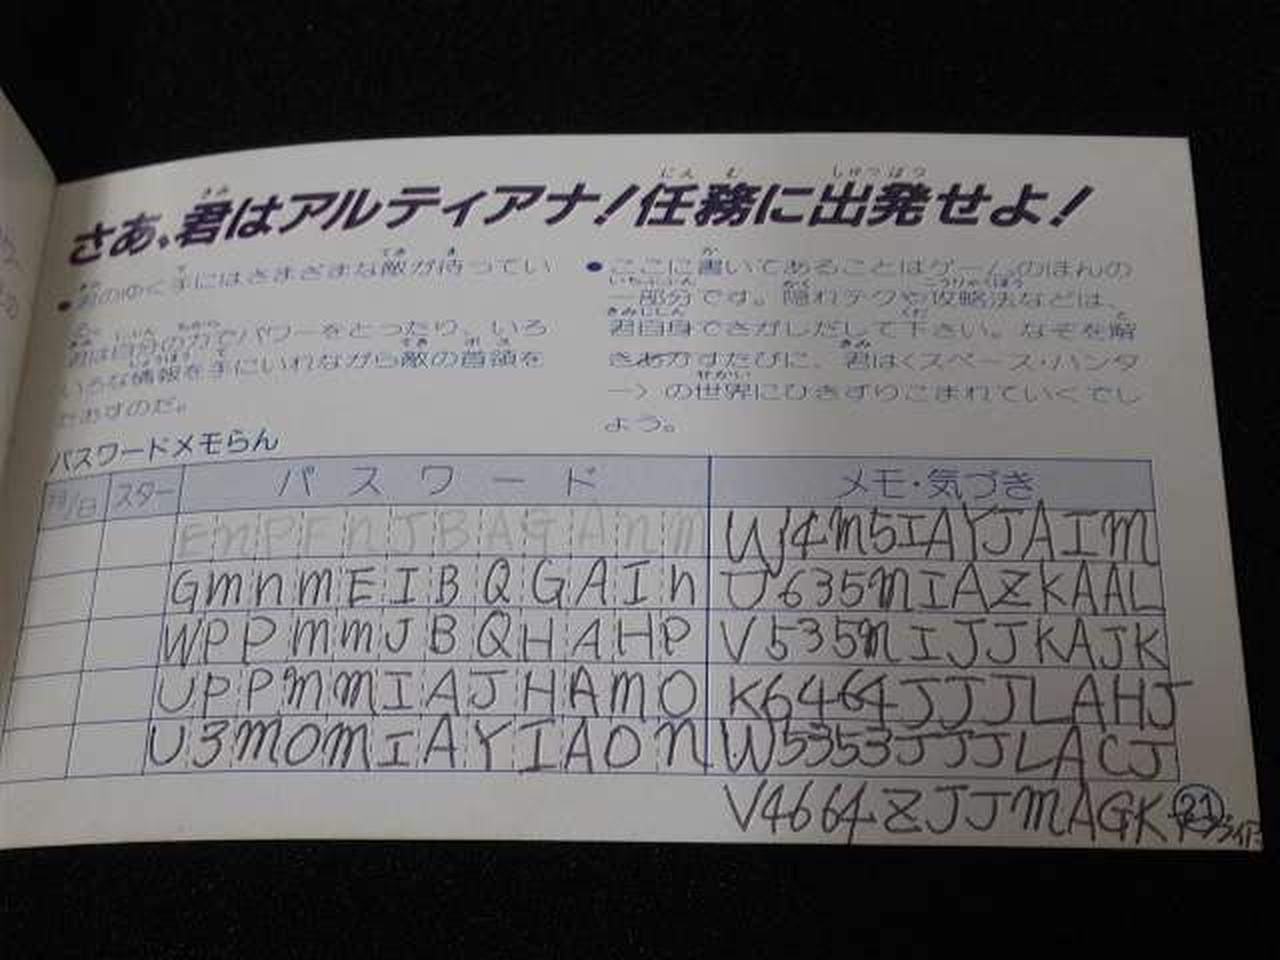 さあ、君はアルティアナ！任務に出発せよ！
●君のゆく手にはさまざまな敵が待ってい
君は自分の力でパワーをとったり、いろ
いろな情報を手にいれながら敵の首領を
たおすのだ。
●ここに書いてあることはゲームのほんの
一部分です。隠れテクや攻略法などは、
君自身でさがしだして下さい。なぞを解
きあかすたびに、君は〈スペース・ハンタ
ー〉の世界にひきずりこまれていくでし
ょう。
パスワードメモらん
月/日 スター パスワード メモ・気づき
EMPFNJBAGANM W4M5IAYJAIM
GMNMEIBQGAIN U635MIAZKAAL
WPPMMJBQHAHP V535MIJJKAJK
UPPMMIAJHAMO K6464JJJLAHJ
U3MOMIAYIAON W5353JJJLACJ
V4664ZJJMAGK 21